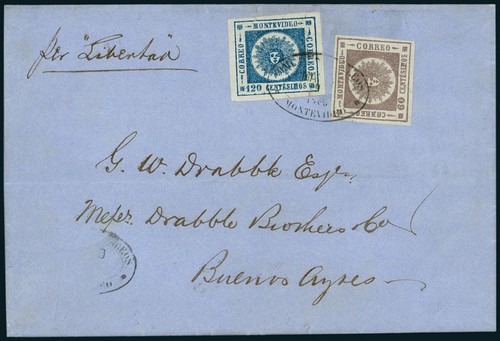 per "Libertad"
MONTEVIDEO
CORREO
CORREO
120 CENTÉSIMOS
CORREO
MONTEVIDEO
60 CENTESIMOS
CORREO
MONTEVIDEO
G. W. Drabble Esqre.
Messrs. Drabble Brothers & Co
Buenos Ayres